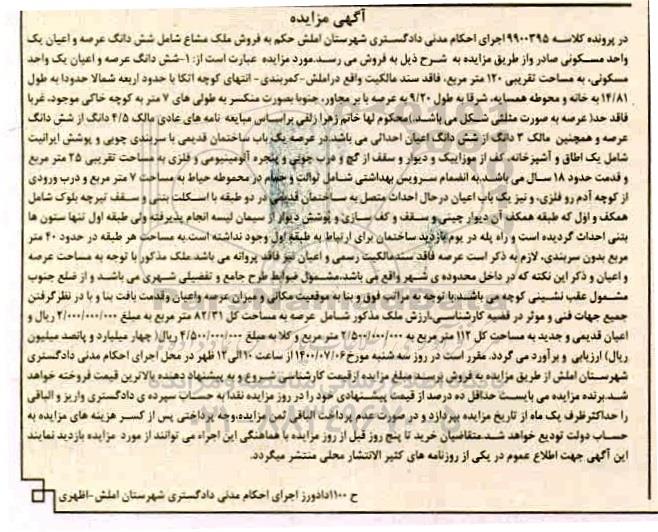 آگهی مزایده
در پرونده کلاسه ۹۹۰۰۳۹۵ اجرای احکام مدنی دادگستری شهرستان املش حکم به فروش ملک مشاع شامل شش دانگ عرصه و اعیان یک
واحد مسکونی صادر واز طریق مزایده به شرح ذیل به فروش می رسد.مورد مزایده عبارت است از: ۱-شش دانگ عرصه و اعیان یک واحد
مسکونی، به مساحت تقریبی ۱۲۰ متر مربع، فاقد سند مالکیت واقع دراملش-کمربندی- انتهای کوچه اتکا با حدود اربعه شمالا حدودا به طول
۱۴/۸۱ به خانه و محوطه همسایه، شرقا به طول ۹/۲۰ به عرصه بایر مجاور، جنوبا بصورت منکسر به طولی های ۷ متر به کوچه خاکی موجود، غربا
فاقد حد( عرصه به صورت مثلثی شکل می باشد.)محکوم لها خانم زهرا زلقی براساس مبایعه نامه های عادی مالک ۴/۵ دانگ از شش دانگ
عرصه و همچنین مالک ۳ دانگ از شش دانگ اعیان احداثی می باشد.در عرصه یک باب ساختمان قدیمی با سربندی چوبی و پوشش ایرانیت
شامل یک اطاق و آشپزخانه، کف از موزاییک و دیوار و سقف از گچ و درب چوبی و پنجره آلومینیومی و فلزی به مساحت تقریبی ۲۵ متر مربع
و قدمت حدود ۱۸ سال می باشد.به انضمام سرویس بهداشتی شامل توالت و حمام در محموطه حیاط به مساحت ۷ متر مربع و درب ورودی
از کوچه آدم رو فلزی، و نیز یک باب اعیان درحال احداث متصل به ساختمان قدیمی در دو طبقه با اسکلت بتنی و سقف تیرچه بلوک شامل
همکف و اول که طبقه همکف آن دیوار چینی و سقف و کف سازی و پوشش دیوار از سیمان لیسه انجام پذیرفته ولی طبقه اول تنها ستون ها
بتنی احداث گردیده است و راه پله در یوم بازدید ساختمان برای ارتباط به طبقه اول وجود نداشته است.به مساحت هر طبقه در حدود ۴۰ متر
مربع بدون سربندی، لازم به ذکر است عرصه فاقد سند مالکیت رسمی و اعیان نیز فاقد پروانه می باشد.ملک مذکور با توجه به مساحت عرصه
و اعیان و ذکر این نکته که در داخل محدوده ی شهر واقع می باشد،مشمول ضوابط طرح جامع و تفضیلی شهری می باشد و از ضلع جنوب
مشمول عقب نشینی کوچه می باشد.با توجه به مراتب فوق و بنا به موقعیت مکانی و میزان عرصه واعیان وقدمت بافت بنا و با در نظر گرفتن
جمیع جهات فنی و موثر در قضیه کارشناسی،ارزش ملک مذکور شامل عرصه به مساحت کل ۸۲/۳۱ متر مربع به مبلغ ۲/۰۰۰/۰۰۰/۰۰۰ ریال و
اعیان قدیمی و جدید به مساحت کل ۱۱۲ متر مربع به ۲/۵۰۰/۰۰۰/۰۰۰ متر مربع و کلا به مبلغ ۴/۵۰۰/۰۰۰/۰۰۰ ریال( چهار میلیارد و پانصد میلیون
ریال) ارزیابی و برآورد می گردد. مقرر است در روز سه شنبه مورخ ۱۴۰۰/۰۷/۰۶ از ساعت ۱۰ الی ۱۲ ظهر در محل اجرای احکام مدنی دادگستری
شهرستان املش از طریق مزایده به فروش برسد.مبلغ مزایده ازقیمت کارشناسی شروع و به پیشنهاد دهنده بالاترین قیمت فروخته خواهد
شد.برنده مزایده می بایست حداقل ده درصد از قیمت پیشنهادی خود را در روز مزایده نقدا به حساب سپرده ی دادگستری واریز و الباقی
را حداکثرظرف یک ماه از تاریخ مزایده بپردازد و در صورت عدم پرداخت الباقی ثمن مزایده،وجه پرداختی پس از کسر هزینه های مزایده به
حساب دولت تودیع خواهد شد.متقاضیان خرید تا پنج روز قبل از روز مزایده با هماهنگی این اجراء می توانند از مورد مزایده بازدید نمایند
این آگهی جهت اطلاع عموم در یکی از روزنامه های کثیر الانتشار محلی منتشر میگردد.
ح ۱۱۰۰دادورز اجرای احکام مدنی دادگستری شهرستان املش-اظهری